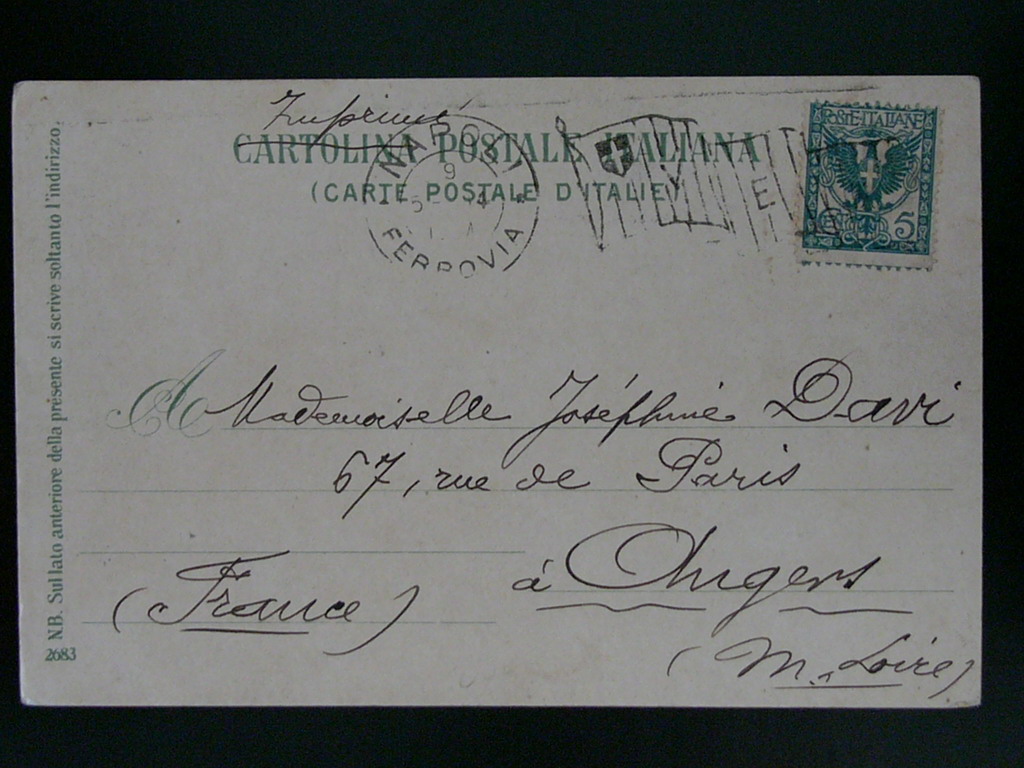 Imprimé
CARTOLINA POSTALE ITALIANA
(CARTE POSTALE D'ITALIE)
NAPOLI
9
FERROVIA
V
E
POSTE·ITALIANE
5
A Mademoiselle Joséphine Davi
67, rue de Paris
à Angers
(France)
(M.-Loire)
N.B. Sul lato anteriore della presente si scrive soltanto l'indirizzo.
2683